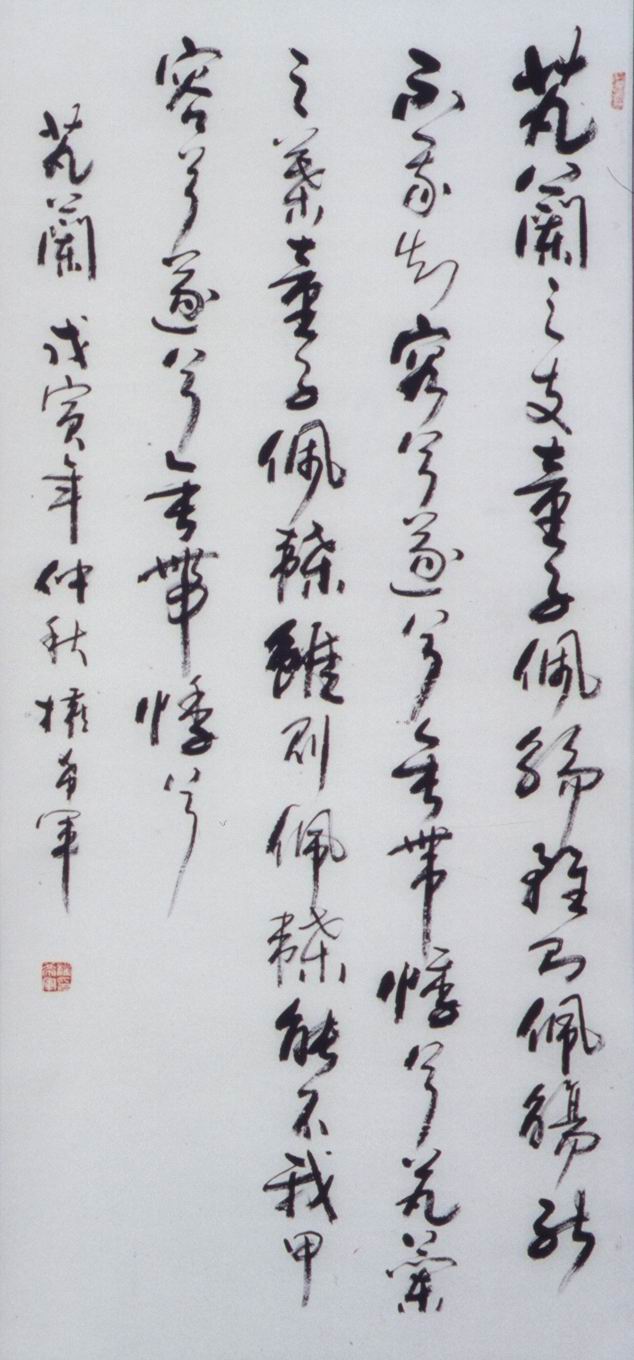 芄蘭之支童子佩觿雖則佩觿能
不我知容兮遂兮垂帶悸兮芄蘭
之葉童子佩韘雖則佩韘能不我甲
容兮遂兮垂帶悸兮
芄蘭 戊寅年仲秋 軍